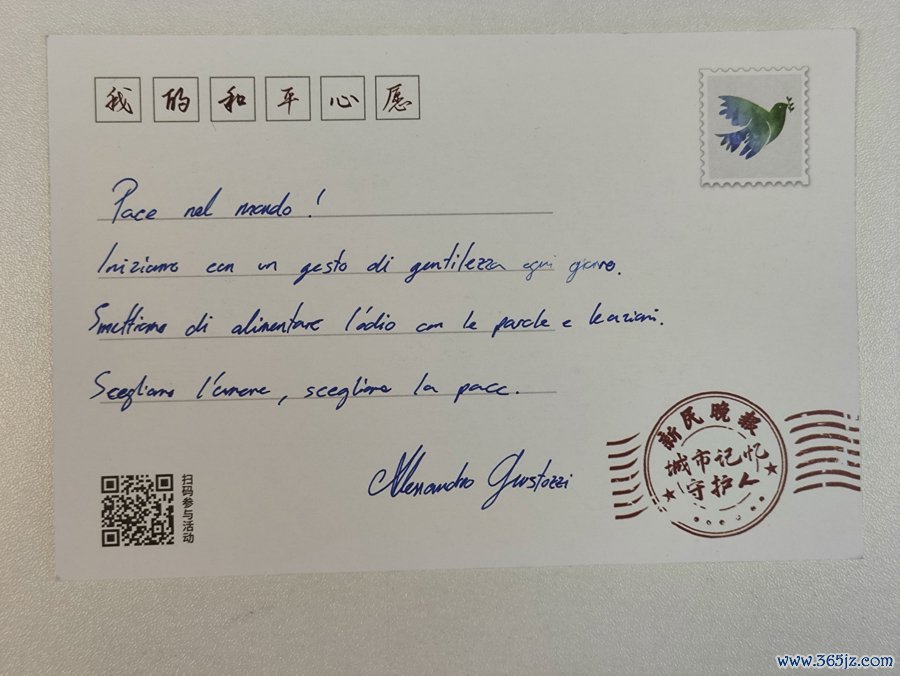 我的和平心愿
Pace nel mondo!
Iniziamo con un gesto di gentilezza ogni giorno.
Smettiamo di alimentare l'odio con le parole e le azioni.
Scegliamo l'amore, scegliamo la pace.
Alessandro Giustozzi
扫码参与活动
新民晚报
城市记忆
守护人
www.365jz.com